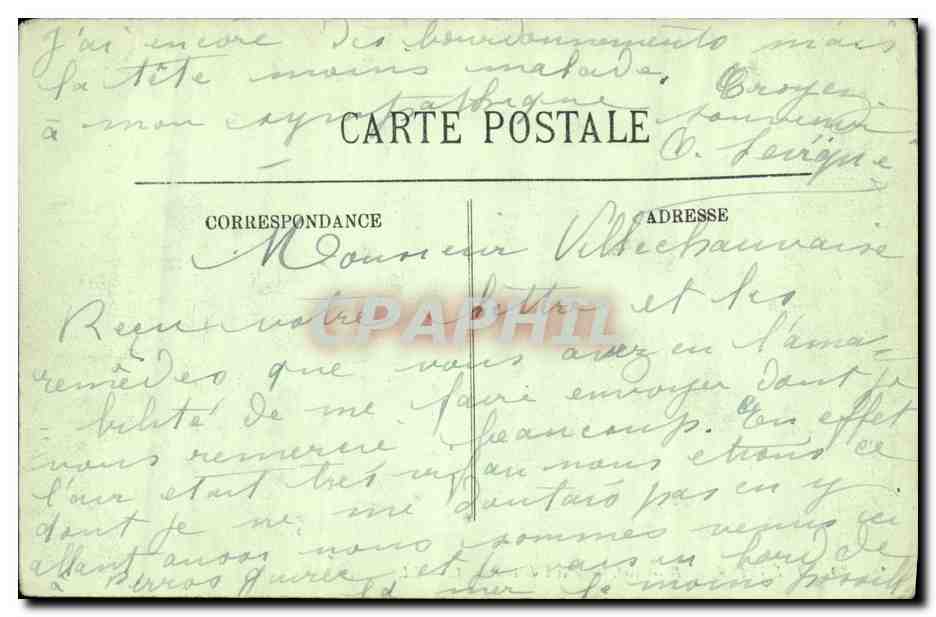 J'ai encore des bourdonnements mais
la tête moins malade. Croyez
à mon sympathique souvenir
CARTE POSTALE
CORRESPONDANCE
ADRESSE
Monsieur Villechauvaise
Reçu votre lettre et les
CPAPHIL
remèdes que vous avez eu l'ama-
-bilité de me faire envoyer dont je
vous remercie beaucoup. En effet
l'air était très vif où nous étions ce
dont je ne me doutais pas en y
allant aussi nous sommes venus ici
à Perros Guirec et je vais au bord de
la mer le moins possible